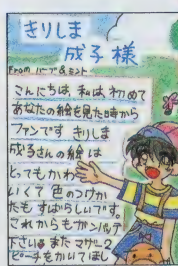 きりしま
成子様
From ハーブ&ミント
こんにちは 私は初めて
あなたの絵を見た時から
ファンです きりしま
成子さんの絵は
とってもかわ
いくて 色のつけか
たも すばらしいです。
これからもガンバッテ
下さい。また マザー2
ピーチをかいてほし